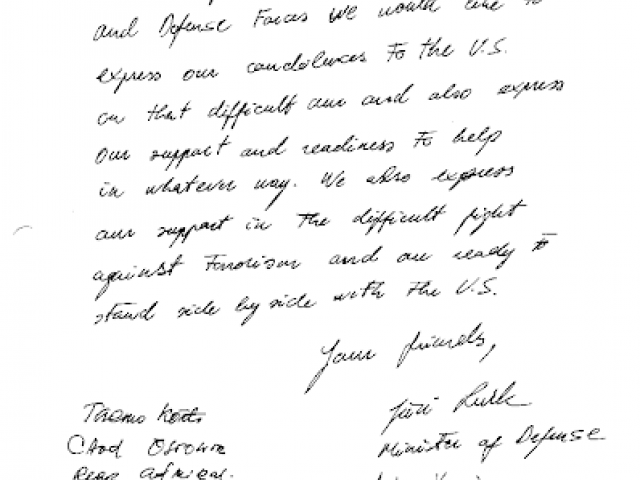 and Defense Forces we would like to
express our condolences to the U.S.
on that difficult our and also express
our support and readiness to help
in whatever way. We also express
our support in the difficult fight
against Terrorism and are ready to
stand side by side with the U.S.
Your friends,
Jüri Luik
Minister of Defense
Tarmo Kõuts
CHoD
Rear Admiral